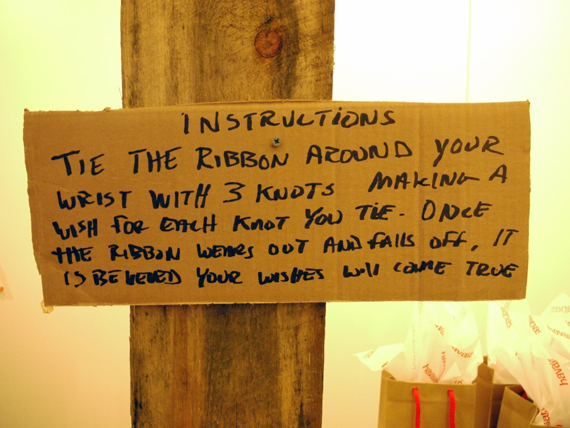 INSTRUCTIONS
TIE THE RIBBON AROUND YOUR
WRIST WITH 3 KNOTS MAKING A
WISH FOR EACH KNOT YOU TIE. ONCE
THE RIBBON WEARS OUT AND FALLS OFF, IT
IS BELEVED YOUR WISHES WILL COME TRUE